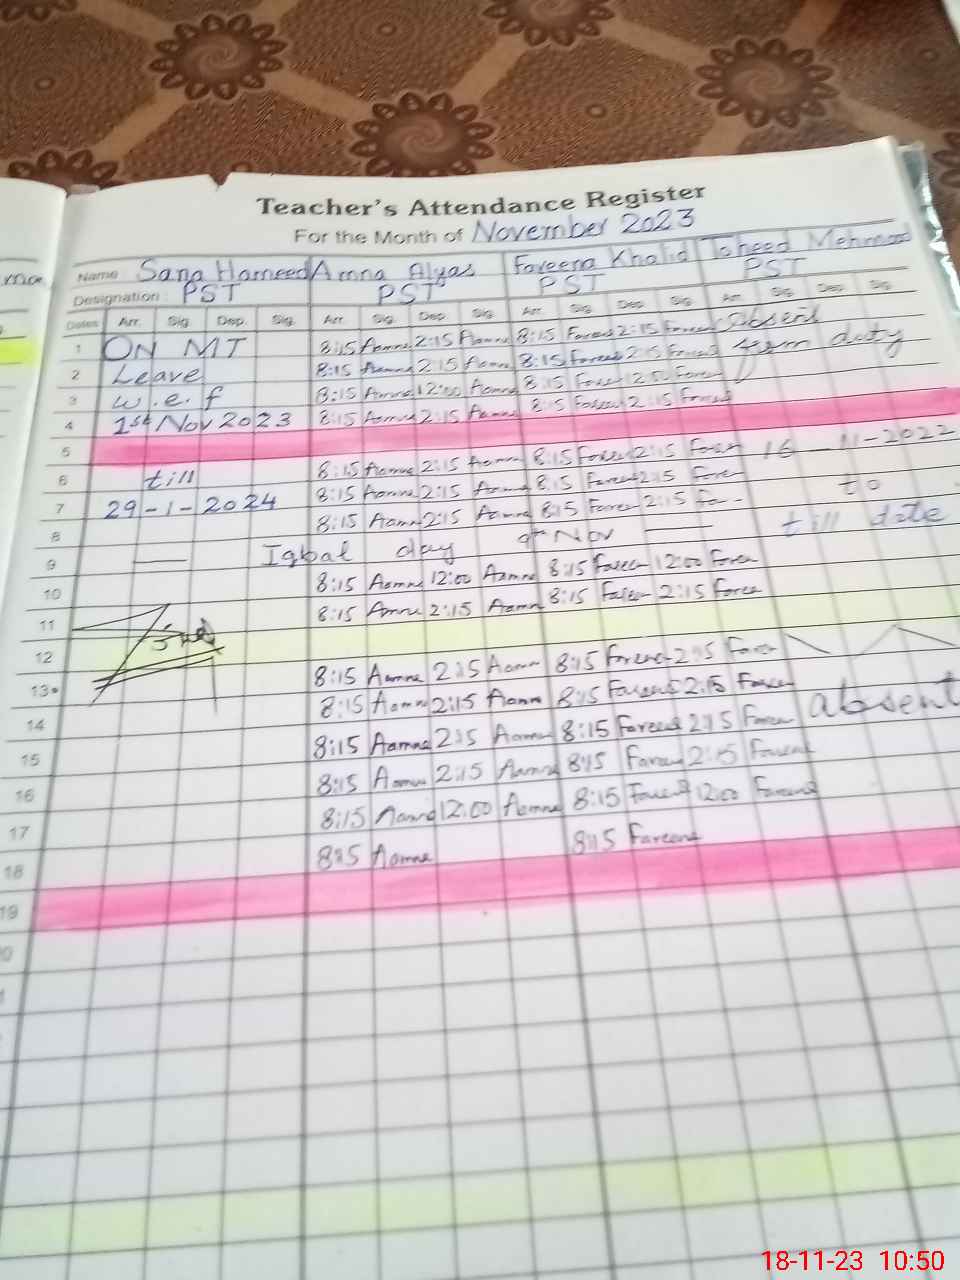 Teacher's Attendance Register
For the Month of November 2023
Name Sana Hameed Amna Alyas Fareena Khalid Toheed Mehmood
Designation: PST PST PST PST
Dates Arr. Sig. Dep. Sig. Arr. Sig. Dep. Sig. Arr. Sig. Dep. Sig. Arr. Sig. Dep. Sig.
1 ON MT 8:15 Aamna 2:15 Aamna 8:15 Fareena 2:15 Fareena absent
2 Leave 8:15 Aamna 2:15 Aamna 8:15 Fareena 2:15 Fareena from duty
3 w.e.f 8:15 Aamna 12:00 Aamna 8:15 12:00
4 1st Nov 2023 8:15 Aamna 2:15 Aamna 8:15 Fareena 2:15 Fareena
5
6 till 8:15 Aamna 2:15 Aamna 8:15 2:15 16 - 11 - 2022
7 29 - 1 - 2024 8:15 Aamna 2:15 Aamna 8:15 2:15 to
8 8:15 Aamna 2:15 Aamna 8:15 2:15 till date
9 Iqbal day 9th Nov
10 8:15 Aamna 12:00 Aamna 8:15 12:00
11 8:15 Aamna 2:15 Aamna 8:15 2:15
12
13 8:15 Aamna 2:15 Aamna 8:15 Fareena 2:15
14 8:15 Aamna 2:15 Aamna 8:15 Fareena 2:15 absent
15 8:15 Aamna 2:15 Aamna 8:15 Fareena 2:15
16 8:15 Aamna 2:15 Aamna 8:15 Fareena 2:15 Fareena
17 8:15 Aamna 12:00 Aamna 8:15 Fareena 12:00 Fareena
18 8:15 Aamna 8:15 Fareena
19
18-11-23 10:50